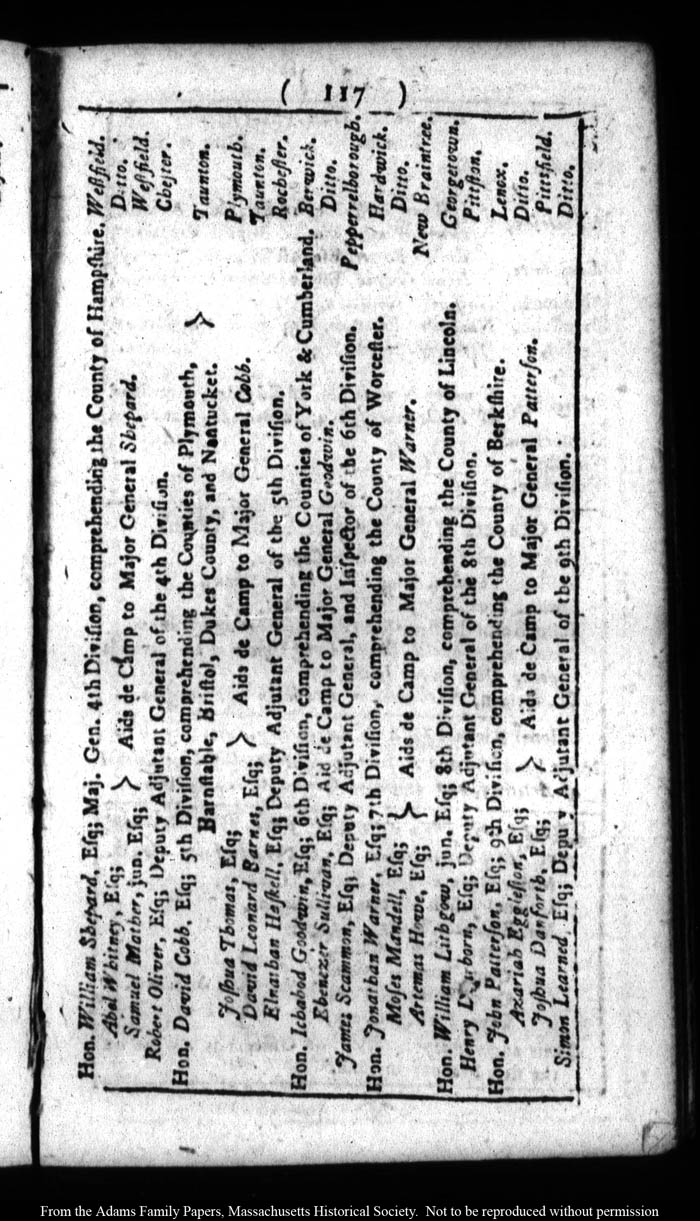 ( 117 )
Hon. William Shepard, Eſq; Maj. Gen. 4th Diviſion, comprehending the County of Hampſhire. Weſtfield.
Abel Whitney, Eſq; Ditto.
Samuel Mather, jun. Eſq; } Aids de Camp to Major General Shepard. Weſtfield.
Robert Oliver, Eſq; Deputy Adjutant General of the 4th Diviſion. Cheſter.
Hon. David Cobb, Eſq; 5th Diviſion, comprehending the Counties of Plymouth,
Barnſtable, Briſtol, Dukes County, and Nantucket. } Taunton.
Joſhua Thomas, Eſq; Plymouth.
David Leonard Barnes, Eſq; } Aids de Camp to Major General Cobb. Taunton.
Elnathan Haſkell, Eſq; Deputy Adjutant General of the 5th Diviſion. Rocheſter.
Hon. Ichabod Goodwin, Eſq; 6th Diviſion, comprehending the Counties of York & Cumberland. Berwick.
Ebenezer Sullivan, Eſq; Aid de Camp to Major General Goodwin. Ditto.
James Scammon, Eſq; Deputy Adjutant General, and Inſpector of the 6th Diviſion. Pepperrelborough.
Hon. Jonathan Warner, Eſq; 7th Diviſion, comprehending the County of Worceſter. Hardwick.
Moſes Mandell, Eſq; Ditto.
Artemas Howe, Eſq; } Aids de Camp to Major General Warner. New Braintree.
Hon. William Lithgow, jun. Eſq; 8th Diviſion, comprehending the County of Lincoln. Georgetown.
Henry Eſq; Deputy Adjutant General of the 8th Diviſion. Pittſton.
Hon. John Patterſon, Eſq; 9th Diviſion, comprehending the County of Berkſhire. Lenox.
Azariah Eggleſton, Eſq; Ditto.
Joſhua Danforth, Eſq; } Aids de Camp to Major General Patterſon. Pittsfield.
Simon Learned, Eſq; Deputy Adjutant General of the 9th Diviſion. Ditto.
From the Adams Family Papers, Massachusetts Historical Society. Not to be reproduced without permission